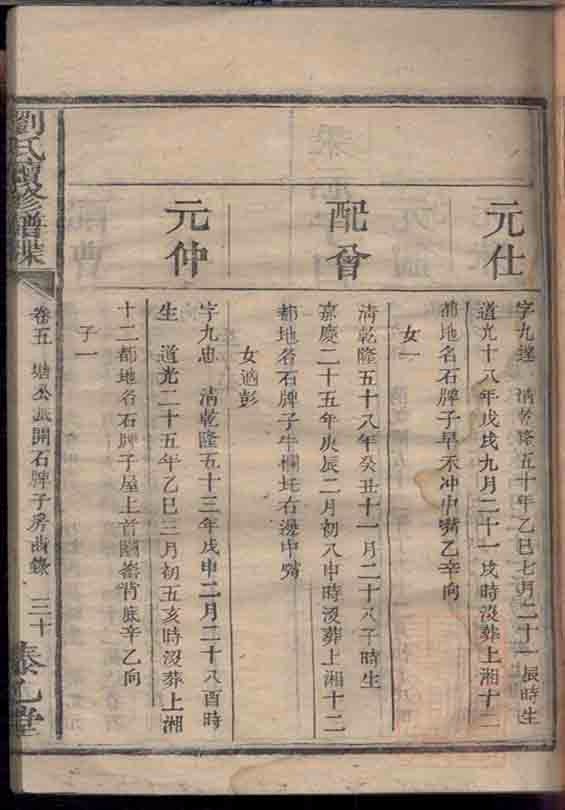 元仕
字九逵 清乾隆五十年乙巳七月二十一辰時生
道光十八年戊戌九月二十一戌時沒葬上湘十二
都地名石牌子旱禾冲中嘴乙辛向
女一
配曾
清乾隆五十八年癸丑十一月二十八子時生
嘉慶二十五年庚辰二月初八申時沒葬上湘十二
都地名石牌子牛欄圫右邊中嘴
女適彭
元仲
字九忠 清乾隆五十三年戊申二月二十八酉時
生 道光二十五年乙巳三月初五亥時沒葬上湘
十二都地名石牌子屋上首關崙背底辛乙向
子一
劉氏續修譜牒
卷五 公派開石牌子房齒錄 三十
堂